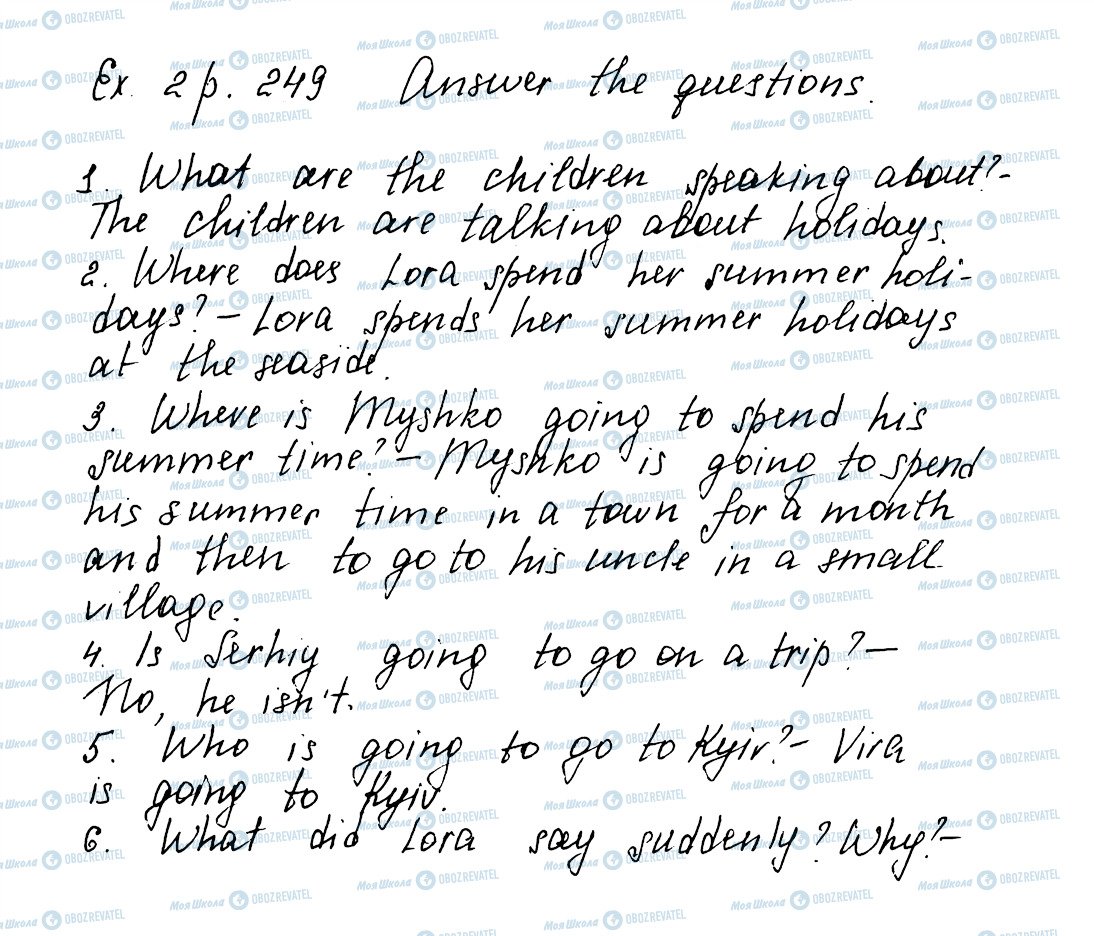 Ex. 2 p. 249 Answer the questions.
1. What are the children speaking about? -
The children are talking about holidays.
2. Where does Lora spend her summer holi-
days? - Lora spends her summer holidays
at the seaside.
3. Where is Myshko going to spend his
summer time? - Myshko is going to spend
his summer time in a town for a month
and then to go to his uncle in a small
village.
4. Is Serhiy going to go on a trip? -
No, he isn't.
5. Who is going to go to Kyiv? - Vira
is going to Kyiv.
6. What did Lora say suddenly? Why? -
Моя Школа OBOZREVATEL